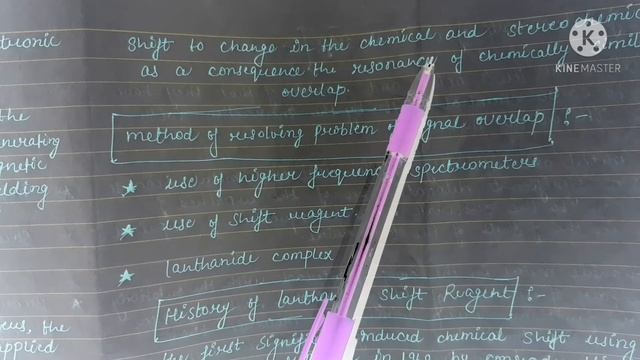 tronic
the
nerating
gnetic
elding
eus, the
applied
shift to change in the chemical and stereochemic
as a consequence the resonance of chemically simil
overlap.
method of resolving problem of signal overlap :-
★ use of higher frequency spectrometers
★ use of shift reagent.
★ lanthanide complex
History of lanthan shift Reagent :-
the first signific induced chemical shift using
in 19
KINEMASTER